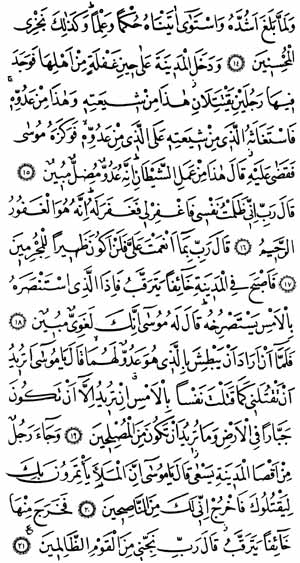 وَلَمَّا بَلَغَ اَشُدَّهُ وَاسْتَوٰٓى اٰتَيْنَاهُ حُكْمًا وَعِلْمًا وَكَذٰلِكَ نَجْزِى
الْمُحْسِنٖينَ ﴿١٤﴾ وَدَخَلَ الْمَدٖينَةَ عَلٰى حٖينِ غَفْلَةٍ مِنْ اَهْلِهَا فَوَجَدَ
فٖيهَا رَجُلَيْنِ يَقْتَتِلَانِ هٰذَا مِنْ شٖيعَتِهٖ وَهٰذَا مِنْ عَدُوِّهٖ
فَاسْتَغَاثَهُ الَّذٖى مِنْ شٖيعَتِهٖ عَلَى الَّذٖى مِنْ عَدُوِّهٖ فَوَكَزَهُ مُوسٰى
فَقَضٰى عَلَيْهِ قَالَ هٰذَا مِنْ عَمَلِ الشَّيْطَانِ اِنَّهُ عَدُوٌّ مُضِلٌّ مُبٖينٌ ﴿١٥﴾
قَالَ رَبِّ اِنّٖى ظَلَمْتُ نَفْسٖى فَاغْفِرْ لٖى فَغَفَرَ لَهُ اِنَّهُ هُوَ الْغَفُورُ
الرَّحٖيمُ ﴿١٦﴾ قَالَ رَبِّ بِمَٓا اَنْعَمْتَ عَلَىَّ فَلَنْ اَكُونَ ظَهٖيرًا لِلْمُجْرِمٖينَ
﴿١٧﴾ فَاَصْبَحَ فِى الْمَدٖينَةِ خَٓائِفًا يَتَرَقَّبُ فَاِذَا الَّذِى اسْتَنْصَرَهُ
بِالْاَمْسِ يَسْتَصْرِخُهُ قَالَ لَهُ مُوسٰٓى اِنَّكَ لَغَوِىٌّ مُبٖينٌ ﴿١٨﴾
فَلَمَّٓا اَنْ اَرَادَ اَنْ يَبْطِشَ بِالَّذٖى هُوَ عَدُوٌّ لَهُمَا قَالَ يَا مُوسٰٓى اَتُرٖيدُ
اَنْ تَقْتُلَنٖى كَمَا قَتَلْتَ نَفْسًا بِالْاَمْسِ اِنْ تُرٖيدُ اِلَّٓا اَنْ تَكُونَ
جَبَّارًا فِى الْاَرْضِ وَمَا تُرٖيدُ اَنْ تَكُونَ مِنَ الْمُصْلِحٖينَ ﴿١٩﴾ وَجَٓاءَ رَجُلٌ
مِنْ اَقْصَا الْمَدٖينَةِ يَسْعٰى قَالَ يَا مُوسٰٓى اِنَّ الْمَلَاَ يَاْتَمِرُونَ بِكَ
لِيَقْتُلُوكَ فَاخْرُجْ اِنّٖى لَكَ مِنَ النَّاصِحٖينَ ﴿٢٠﴾ فَخَرَجَ مِنْهَا
خَٓائِفًا يَتَرَقَّبُ قَالَ رَبِّ نَجِّنٖى مِنَ الْقَوْمِ الظَّالِمٖينَ ﴿٢١﴾